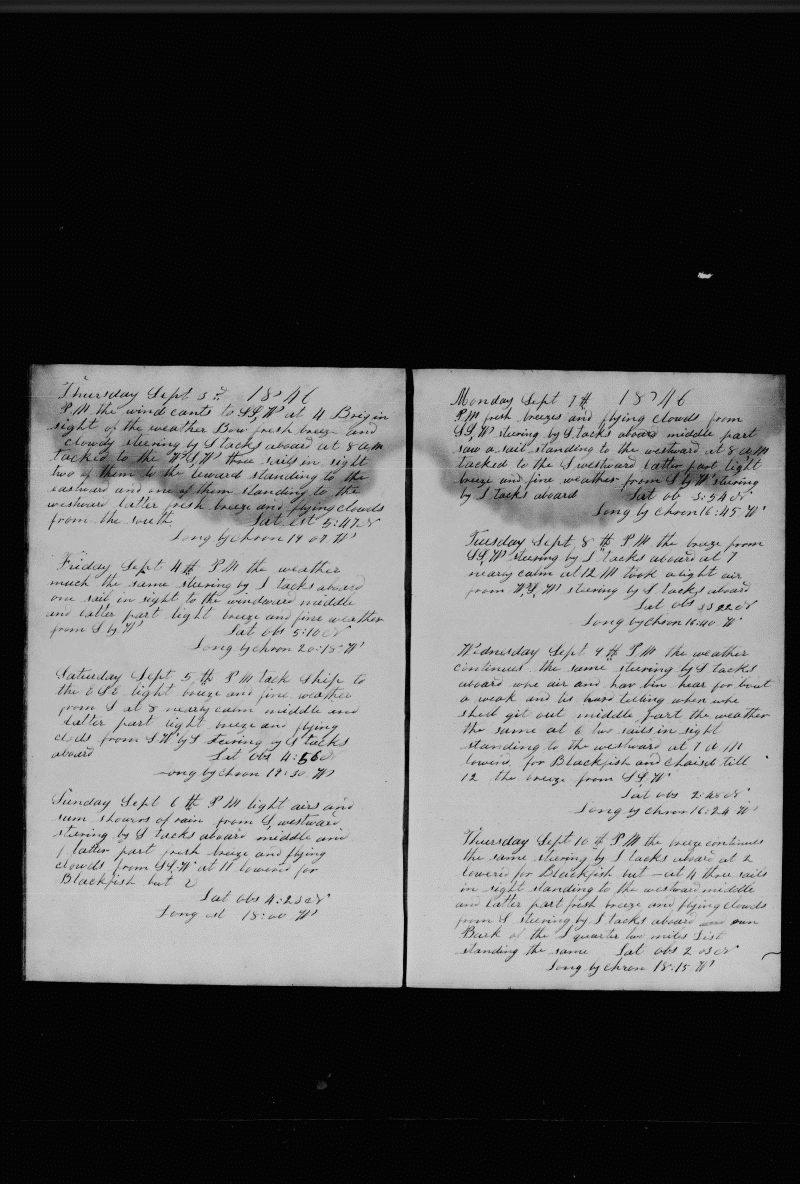 Thursday Sept 3rd 1846
P M the wind cants to S,S,W at 4 Brig in
sight of the weather Bow fresh breeze and
cloudy steering by S tacks aboard at 8 a m
tacked to the W,S,W three sails in sight
two of them to the leward standing to the
eastward and one of them standing to the
westward latter fresh breeze and flying clouds
from the south Lat est 5:47 N
Long by chron 19 07 W
Friday Sept 4th P M the weather
much the same steering by S tacks aboard
one sail in sight to the windward middle
and latter part light breeze and fine weather
from S by W Lat obs 5:10 N
Long by chron 20:18 W
Saturday Sept 5th P M tack Ship to
the E S E light breeze and fine weather
from S at 8 nearly calm middle and
latter part light breeze and flying
clods from S W by S Steering by S tacks
aboard Lat obs 4:56 N
Long by chron 19:30 W
Sunday Sept 6th P M light airs and
sum showers of rain from S,westward
steering by S tacks aboard middle and
latter part fresh breeze and flying
clowds from S,S,W at 11 lowered for
Blackfish but 2
Lat obs 4:23 N
Long est 18:00 W
Monday Sept 7th 1846
P M fresh breezes and flying clowds from
S,S,W steering by S tacks aboard middle part
saw a sail standing to the westward at 8 a m
tacked to the S westward latter part light
breeze and fine weather from S by W steering
by S tacks aboard Lat ob 3:54 N
Long by chron 16:45 W
Tuesday Sept 8th P M the breeze from
S,S,W steering by S tacks aboard at 7
nearly calm at 12 M took a light air
from W,S,W steering by S tacks aboard
Lat obs 3 22 N
Long by chron 16:40 W
Wednesday Sept 9th P M the weather
continues the same steering by S tacks
aboard whe air and hav bin hear for bout
a weak and its hard telling when whe
shall git out middle part the weather
the same at 6 two sails in sight
standing to the westward at 7 A M
lowerd for Blackfish and chaisd till
12 the breeze from S,S,W
Lat obs 2:48 N
Long by chron 16:24 W
Thursday Sept 10th P M the breeze continues
the same steering by S tacks aboard at 2
lowered for Blackfish but — at 4 three sails
in sight standing to the westward middle
and latter part fresh breeze and flying clowds
from S steering by S tacks aboard
Bark of the S quarter two miles Dist
standing the same Lat obs 2 03 N
Long by chron 18:15 W